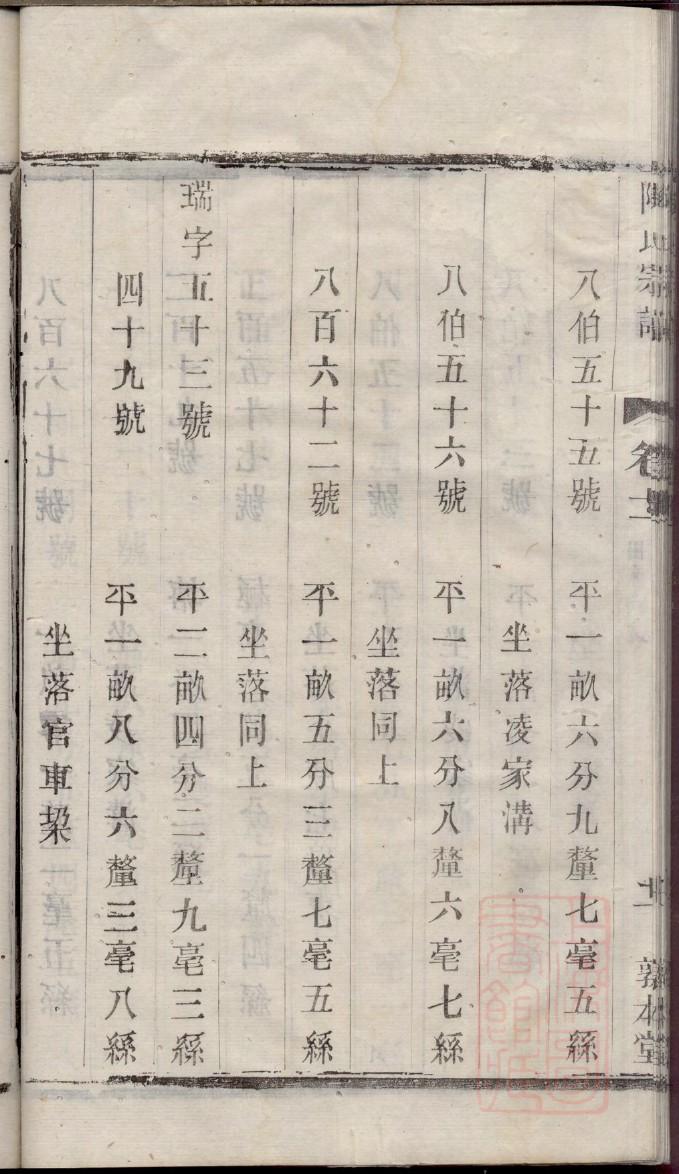 氏宗譜 卷十 敦本堂
八伯五十五號 平一畝六分九釐七毫五絲
坐落凌家溝
八伯五十六號 平一畝六分八釐六毫七絲
坐落同上
八百六十二號 平一畝五分三釐七毫五絲
坐落同上
瑞字五十三號 平二畝四分二釐九毫三絲
四十九號 平一畝八分六釐三毫八絲
坐落官車梁